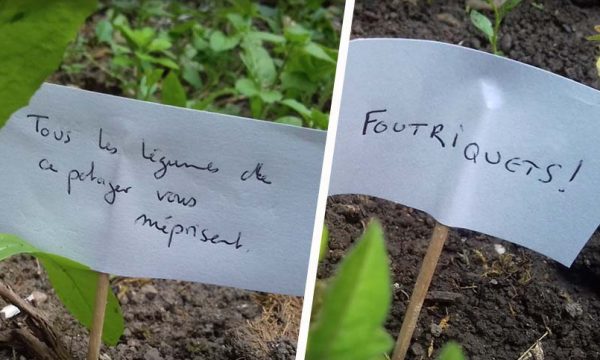 Tous les légumes de
ce potager vous
méprisent.
FOUTRIQUETS!